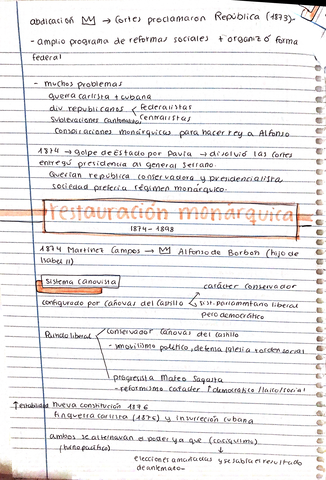 abdicación 👑 → Cortes proclamaron República (1873).
- amplio programa de reformas sociales + organizó forma
federal
- muchos problemas
guerra carlista + cubana
div. republicanos federalistas
centralistas
Sublevaciones cantonales
Conspiraciones monárquicas para hacer rey a Alfonso
1874 → golpe de Estado por Pavía → disolvió las Cortes
entregó presidencia al general Serrano.
Querían república conservadora y presidencialista,
sociedad prefería régimen monárquico.
restauración monárquica
1874-1898
1874 Martínez Campos → 👑 Alfonso de Borbón (hijo de
Isabel II)
Sistema Canovista
carácter conservador
configurado por Cánovas del Castillo
sist. parlamentario liberal
pero democrático
Partido liberal
conservador Cánovas del Castillo
- inmovilismo político, defensa iglesia y orden social
progresista Mateo Sagasta
- reformismo carácter ↑ democrático /laico/social
↑ estabilidad Nueva constitución 1876
fin guerra carlista (1876) y insurrección cubana
ambos se alternaban el poder ya que (caciquismo)
(turno pacífico)
elecciones amañadas y se sabía el resultado
de antemano